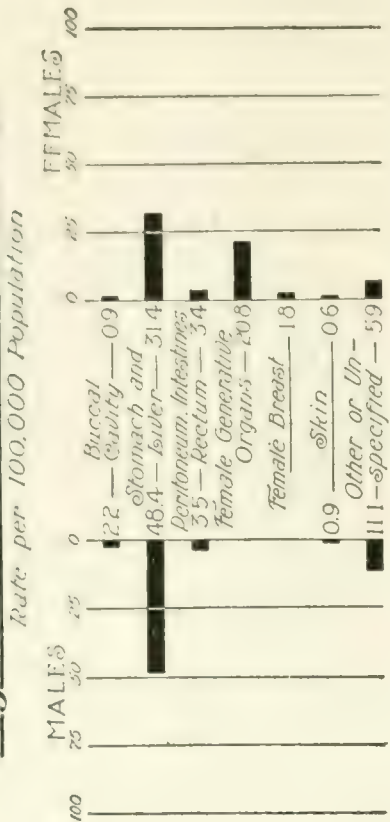 Rate per 100,000 Population
MALES FEMALES
100 75 50 25 0 0 25 50 75 100
Buccal
2.2 — Cavity — 0.9
Stomach and
48.4 — Liver — 31.4
Peritoneum, Intestines
3.5 — Rectum — 3.4
Female Generative
Organs — 20.8
Female Breast — 1.8
0.9 — Skin — 0.6
Other or Un-
11.1 — specified — 5.9